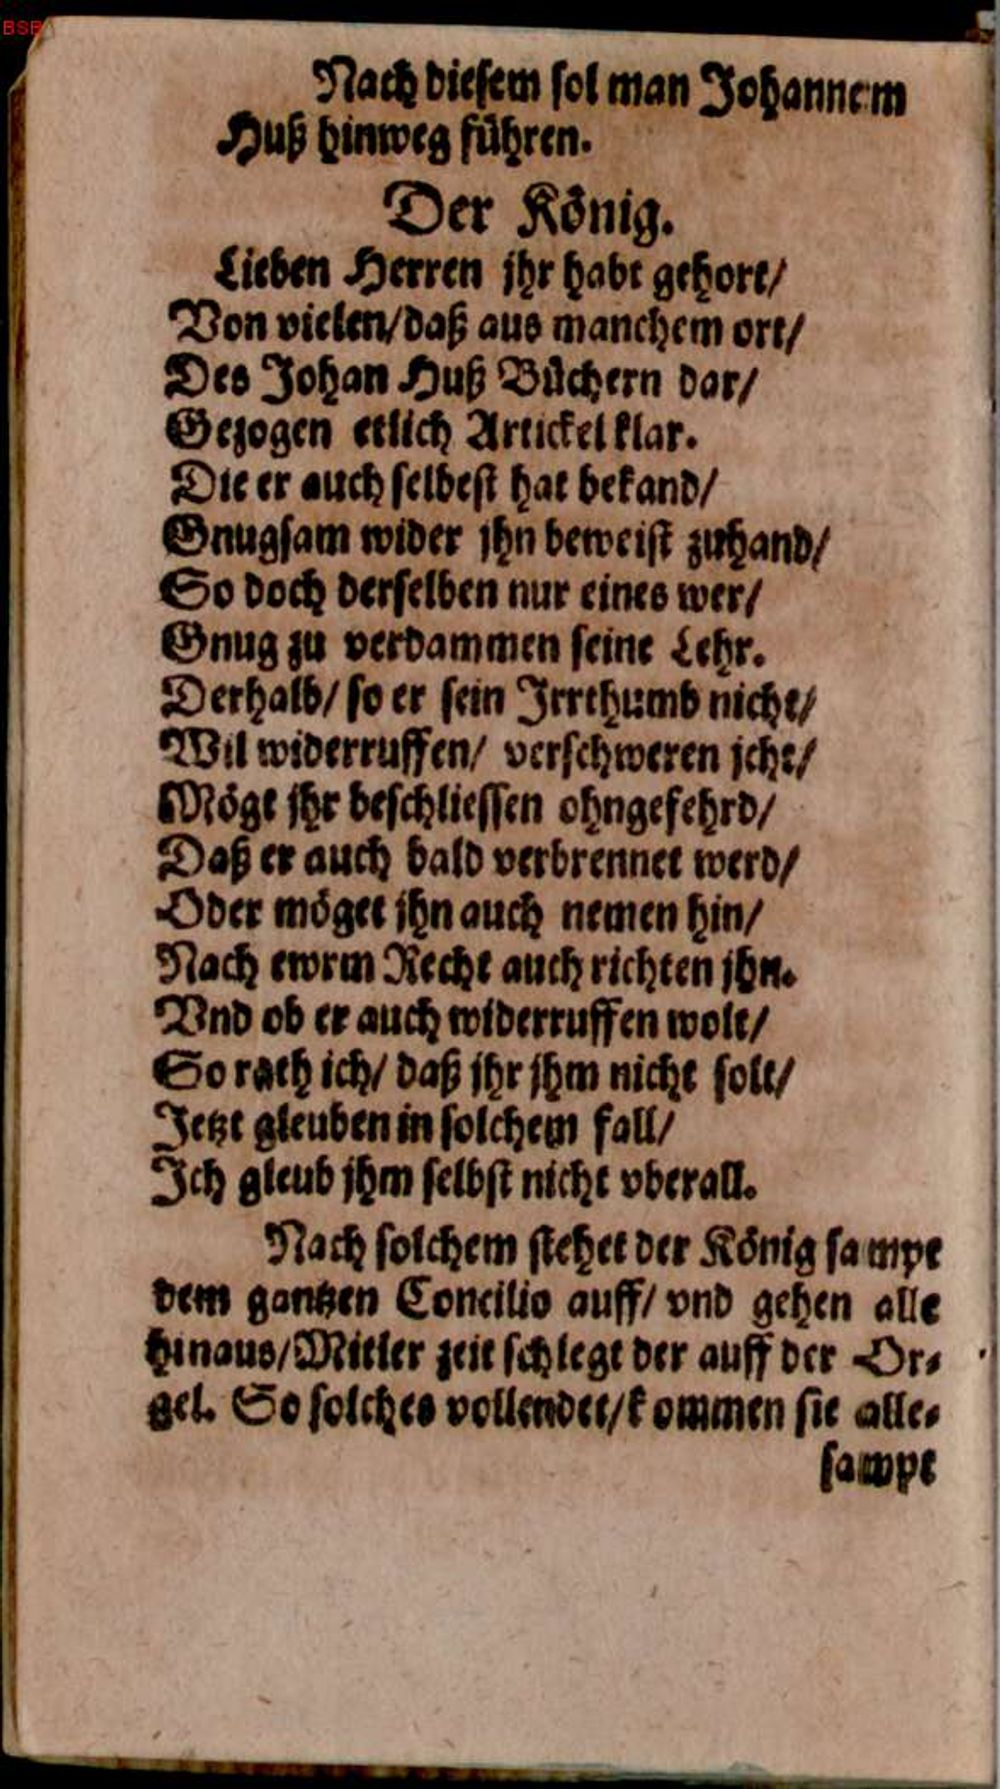 BSB
Nach diesem sol man Johannem
Huß hinweg führen.
Der König.
Lieben Herren jhr habt gehort/
Von vielen/daß aus manchem ort/
Des Johan Huß Büchern dar/
Gezogen etlich Artickel klar.
Die er auch selbest hat bekand/
Gnugsam wider jhn beweist zuhand/
So doch derselben nur eines wer/
Gnug zu verdammen seine Lehr.
Derhalb/ so er sein Irrthumb nicht/
Wil widerruffen/ verschweren icht/
Mögt jhr beschliessen ohngefehrd/
Daß er auch bald verbrennet werd/
Oder möget jhn auch nemen hin/
Nach ewrm Recht auch richten jhn.
Vnd ob er auch widerruffen wolt/
So rath ich/ daß jhr jhm nicht solt/
Jetzt gleuben in solchem fall/
Ich gleub jhm selbst nicht vberall.
Nach solchem stehet der König sampt
dem gantzen Concilio auff/ vnd gehen alle
hinaus/Mitler zeit schlegt der auff der Or-
gel. So solches vollendet/kommen sie alle-
sampt